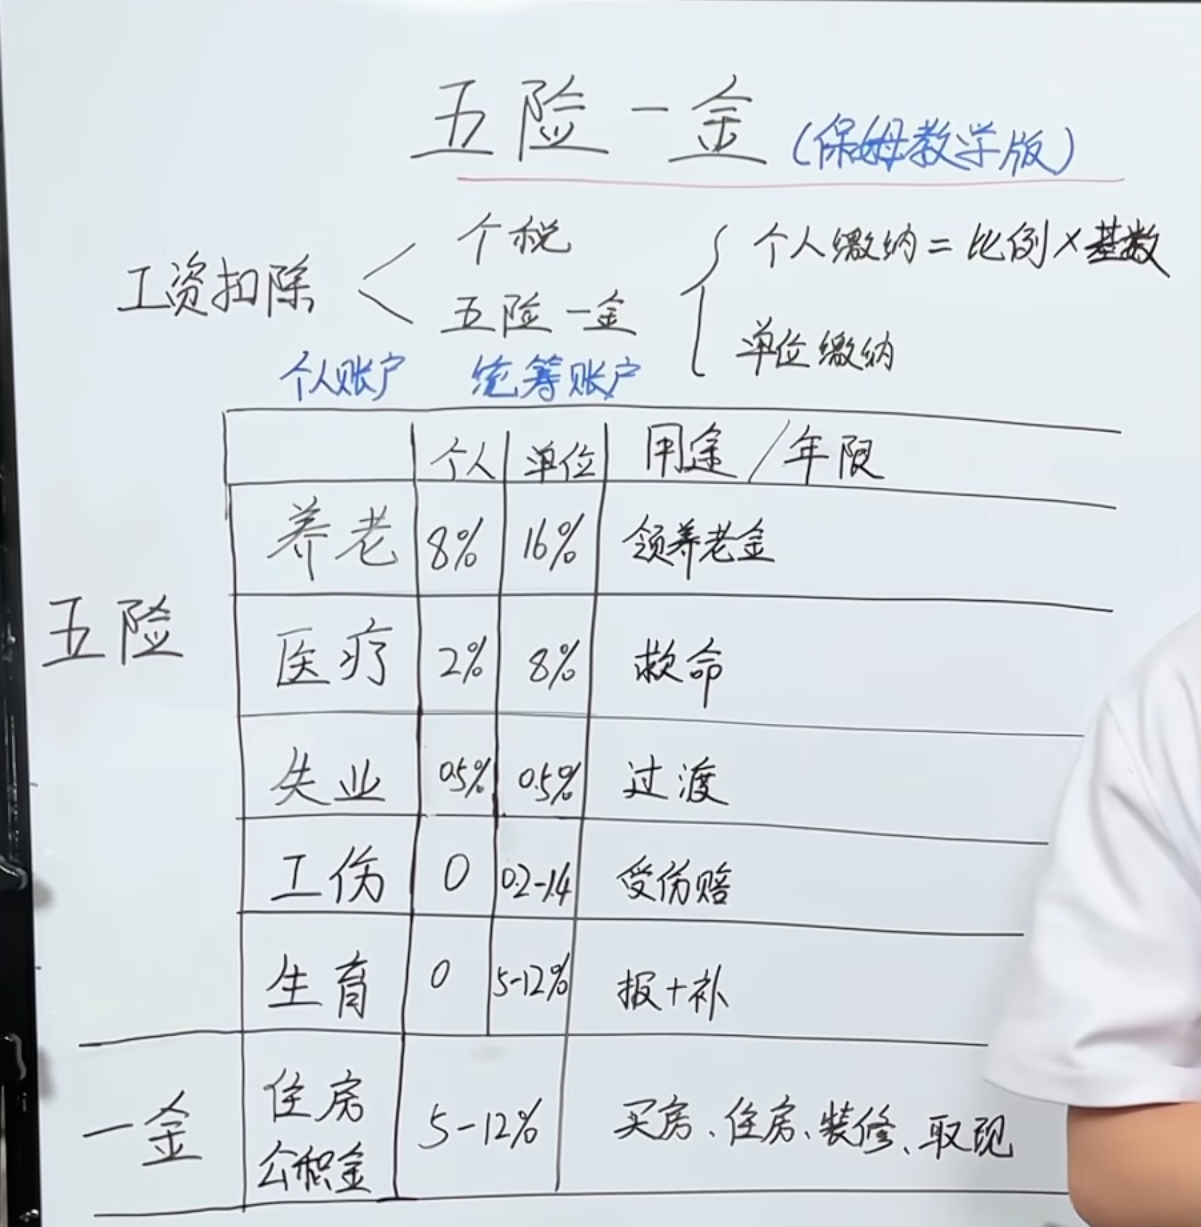 五险一金(保姆教学版)
工资扣除
个税
五险一金
个人缴纳=比例×基数
单位缴纳
个人账户 统筹账户
个人 单位 用途/年限
五险
养老 8% 16% 领养老金
医疗 2% 8% 救命
失业 0.5% 0.5% 过渡
工伤 0 0.2-1.4 受伤赔
生育 0 5-12% 报+补
一金
住房
公积金
5-12% 买房、住房、装修、取现